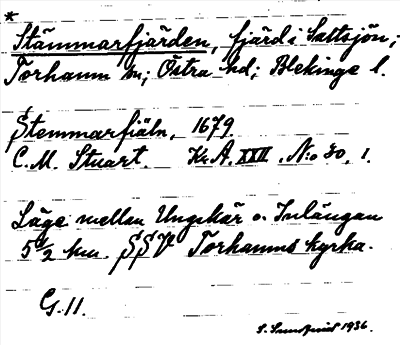 *
Stämmarfjärden, fjärd i Saltsjön;
Torhamn sn; Östra hd; Blekinge l.
Stemmarfiäln, 1679.
C. M. Stuart. Kr.A. XXII. N:o 30, 1.
Läge mellan Ungskär o. Inlängan
5 1/2 km. SSV Torhamns kyrka.
G. 11.
S. Sundquist 1936.